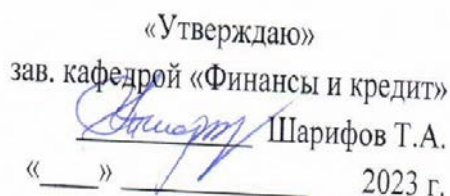 «Утверждаю»
зав. кафедрой «Финансы и кредит»
____________ Шарифов Т.А.
«____» ______________ 2023 г.